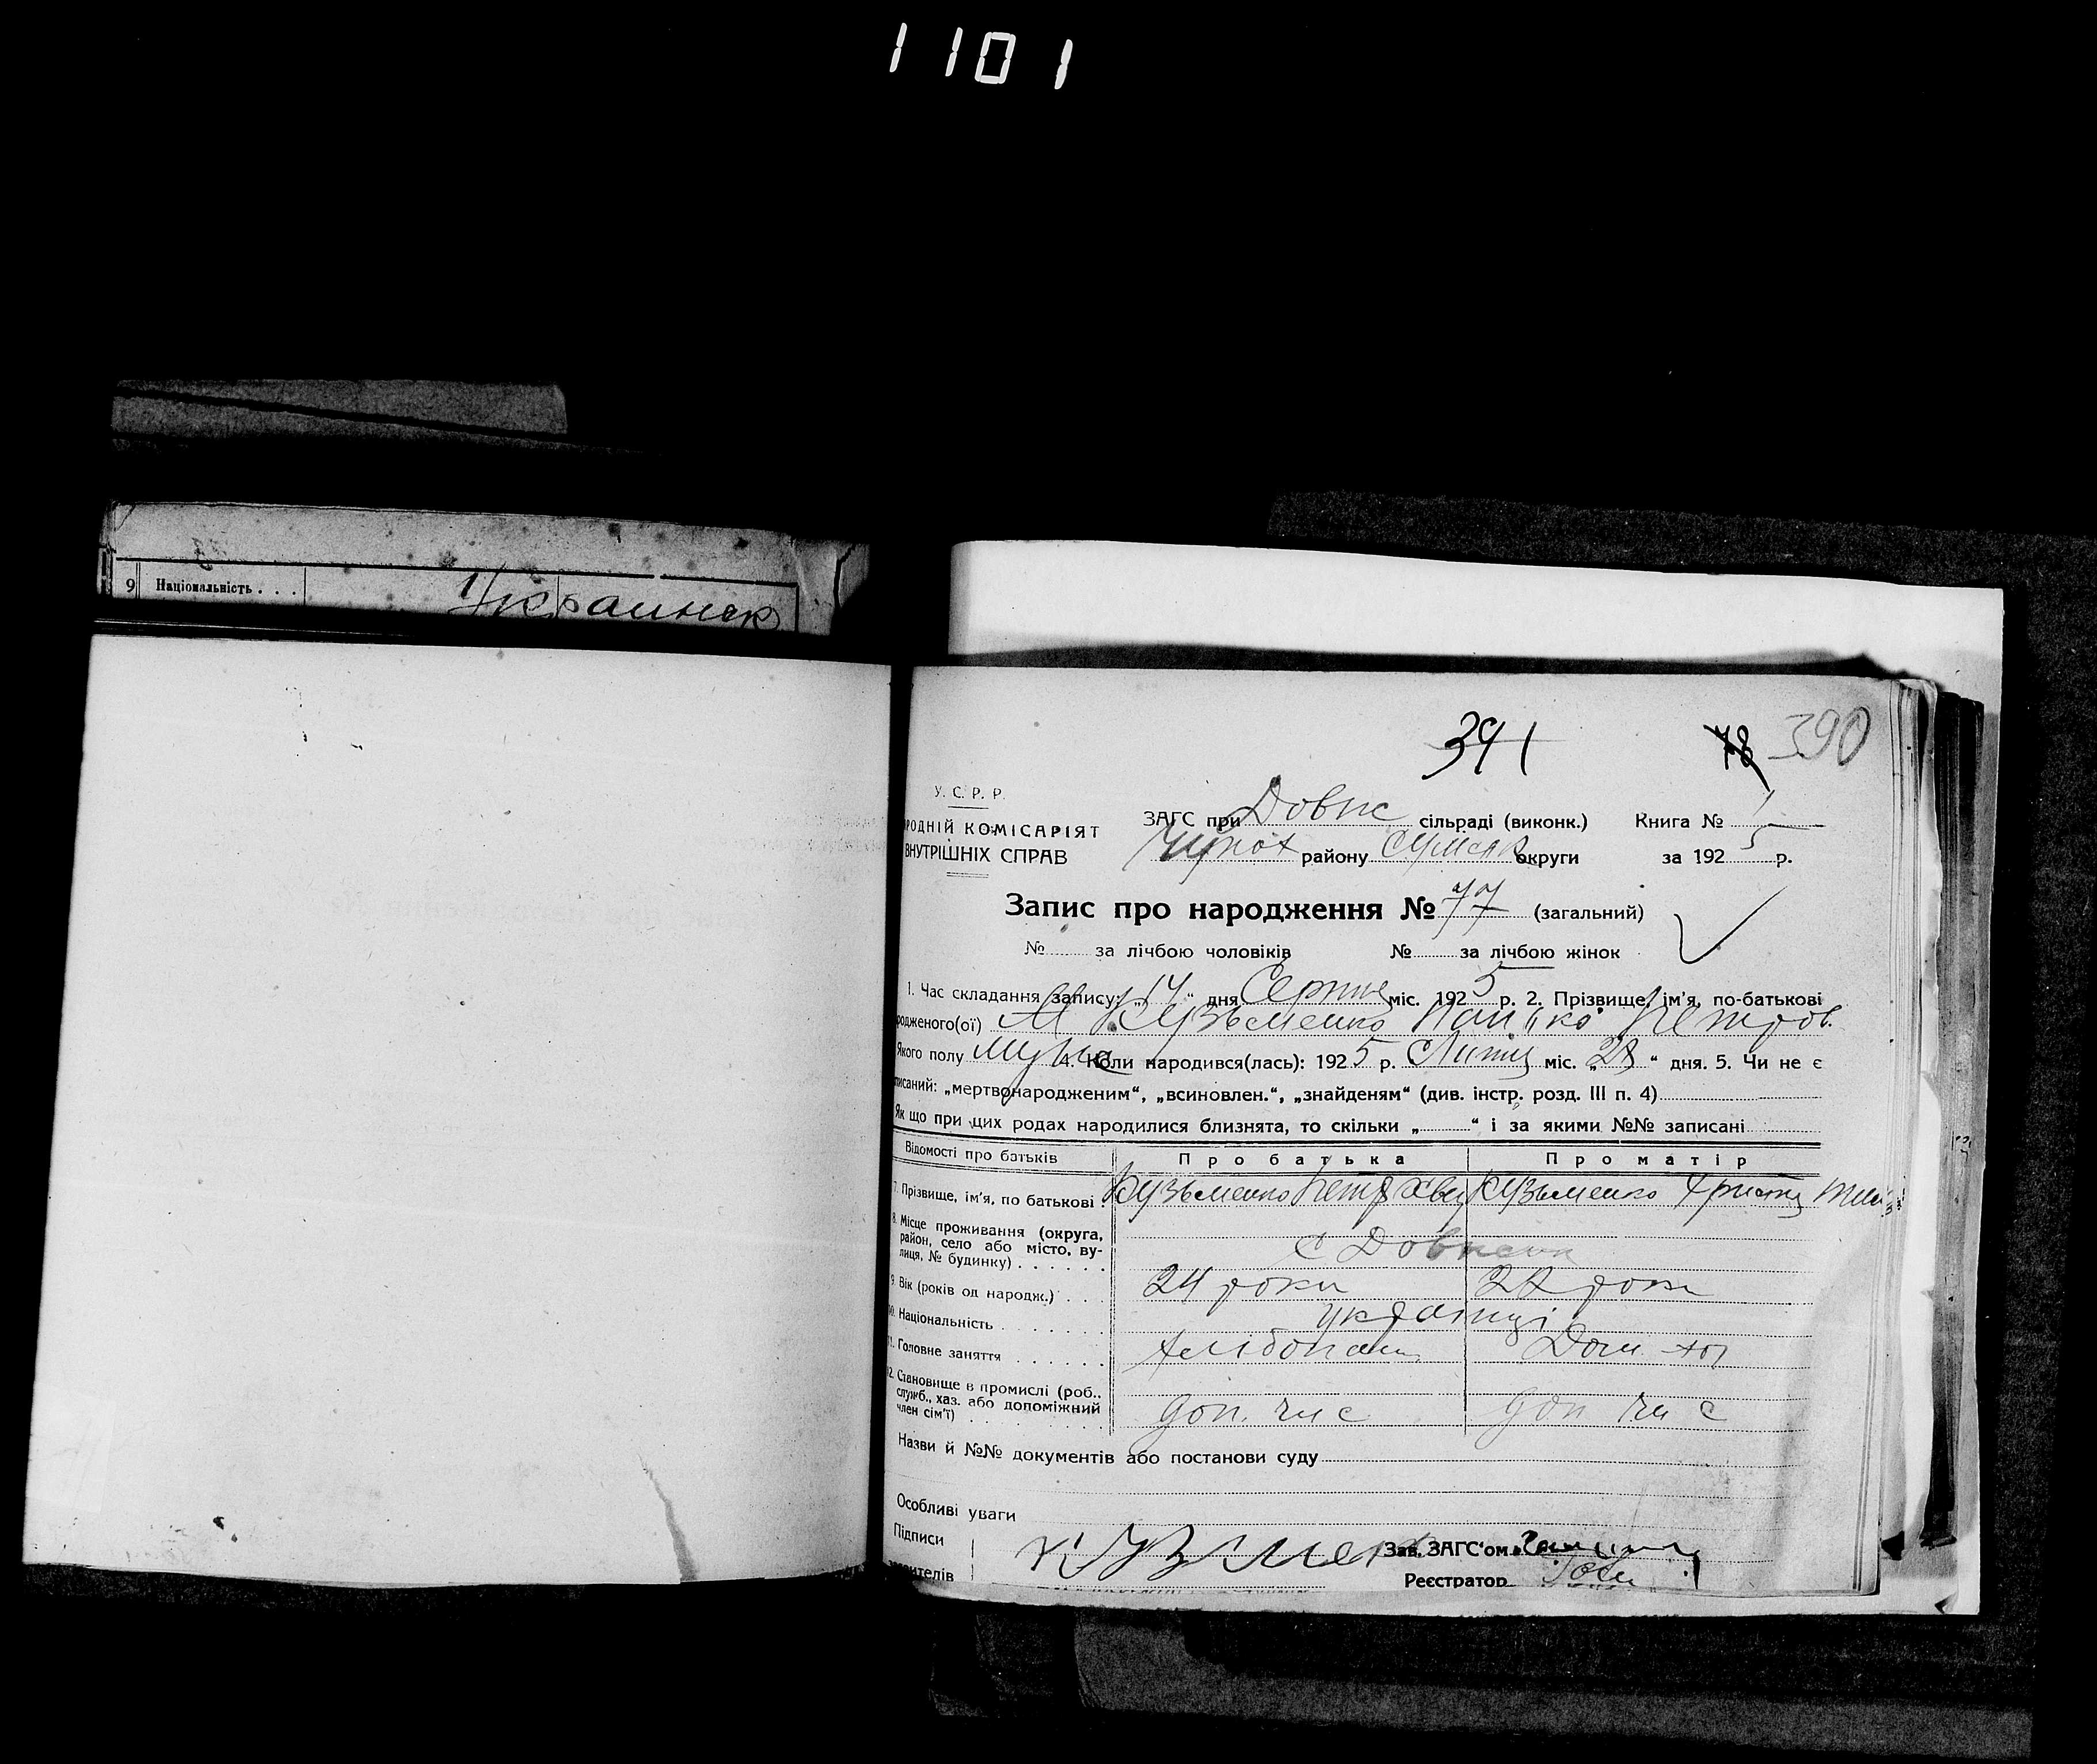 1101
9 Національність . . .
Украинск
391
78 390
У. С. Р. Р.
РОДНІЙ КОМІСАРІЯТ
ВНУТРІШНІХ СПРАВ
ЗАГС при Довж сільраді (виконк.) Книга № 1
району Сумск округи за 1925 р.
Запис про народження № 77 (загальний)
№ за лічбою чоловіків № за лічбою жінок
1. Час складання запису: „14“ дня Серпня міс. 1925 р. 2. Прізвище, ім'я, по-батькові
родженого(ої) М Кузьменко Петров.
Якого полу муж 4. Коли народився(лась): 1925 р. Липня міс. „28“ дня. 5. Чи не є
писаний: „мертвонародженим“, „всиновлен.“, „знайденям“ (див. інстр. розд. III п. 4)
Як що при цих родах народилися близнята, то скільки „ “ і за якими №№ записані
Відомості про батьків Про батька Про матір
7. Прізвище, ім'я, по батькові . Кузьменко Петр Кузьменко
8. Місце проживання (округа,
район, село або місто, ву-
лиця, № будинку) . . . . . .
с
9. Вік (років од народж.) . . . 24 роки роки
10. Національність . . . . . . . українці
11. Головне заняття . . . . . . Дом
12. Становище в промислі (роб.,
служб., хаз. або допоміжний
член сім'ї) . . . . . . . . доп. чл с доп чл с
Назви й №№ документів або постанови суду
Особливі уваги
Підписи
явителів
Кузмен
Зав. ЗАГС'ом
Реєстратор